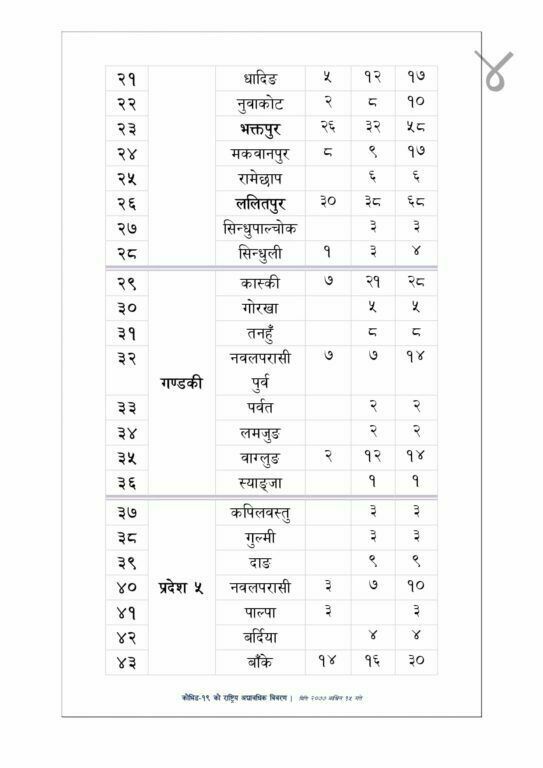 ४
२१ धादिङ ५ १२ १७
२२ नुवाकोट २ ८ १०
२३ भक्तपुर २६ ३२ ५८
२४ मकवानपुर ८ ९ १७
२५ रामेछाप ६ ६
२६ ललितपुर ३० ३८ ६८
२७ सिन्धुपाल्चोक ३ ३
२८ सिन्धुली १ ३ ४
२९ कास्की ७ २१ २८
३० गोरखा ५ ५
३१ तनहुँ ८ ८
३२ नवलपरासी ७ ७ १४
गण्डकी पुर्व
३३ पर्वत २ २
३४ लमजुङ २ २
३५ वाग्लुङ २ १२ १४
३६ स्याङ्जा १ १
३७ कपिलवस्तु ३ ३
३८ गुल्मी ३ ३
३९ दाङ ९ ९
४० प्रदेश ५ नवलपरासी ३ ७ १०
४१ पाल्पा ३ ३
४२ बर्दिया ४ ४
४३ बाँके १४ १६ ३०
कोभिड-१९ को राष्ट्रिय अद्यावधिक विवरण | मिति २०७७ असिन १५ गते